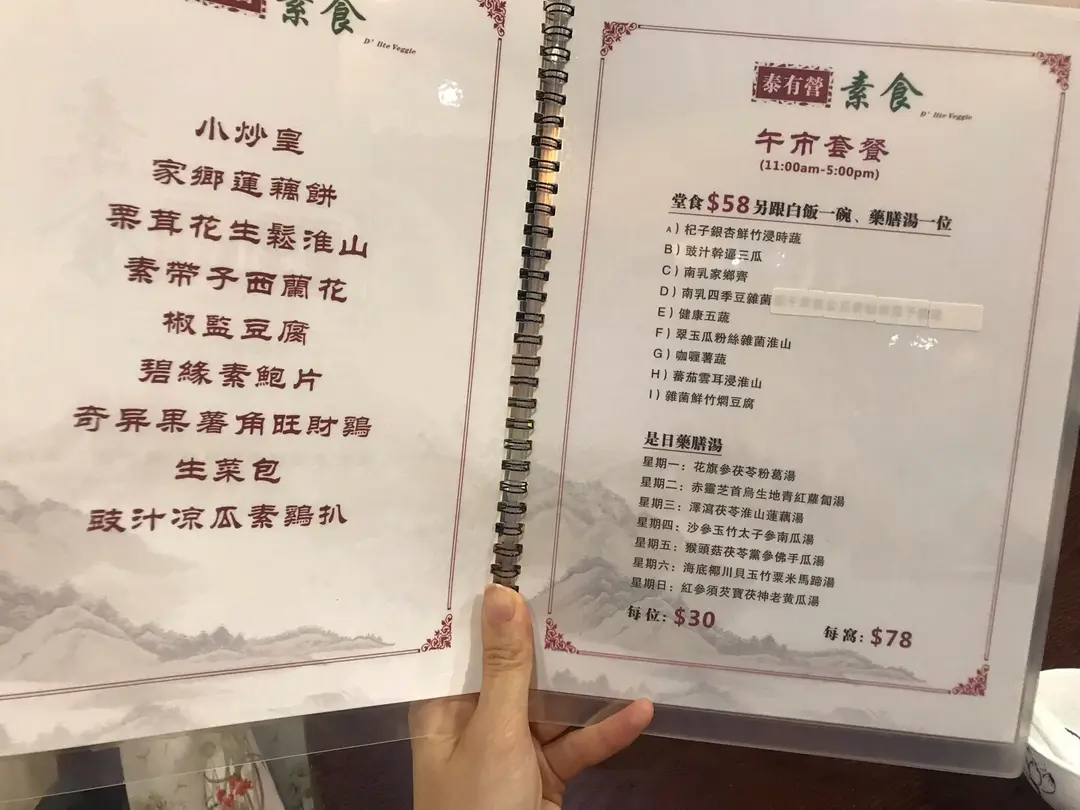 素食
D' lite Veggie
小炒皇
家鄉蓮藕餅
栗茸花生鬆淮山
素帶子西蘭花
椒監豆腐
碧緣素鮑片
奇异果薯角旺財鷄
生菜包
豉汁凉瓜素鷄扒
泰有營 素食
D' lite Veggie
午市套餐
(11:00am-5:00pm)
堂食$58另跟白飯一碗、藥膳湯一位
A）杞子銀杏鮮竹浸時蔬
B）豉汁幹逼三瓜
C）南乳家鄉齊
D）南乳四季豆雜菌
E）健康五蔬
F）翠玉瓜粉絲雜菌淮山
G）咖喱薯蔬
H）蕃茄雲耳浸淮山
I）雜菌鮮竹燜豆腐
是日藥膳湯
星期一：花旗參茯苓粉葛湯
星期二：赤靈芝首烏生地青紅蘿蔔湯
星期三：澤瀉茯苓淮山蓮藕湯
星期四：沙參玉竹太子參南瓜湯
星期五：猴頭菇茯苓黨參佛手瓜湯
星期六：海底椰川貝玉竹粟米馬蹄湯
星期日：紅參須芡寶茯神老黄瓜湯
每位：$30
每窩：$78